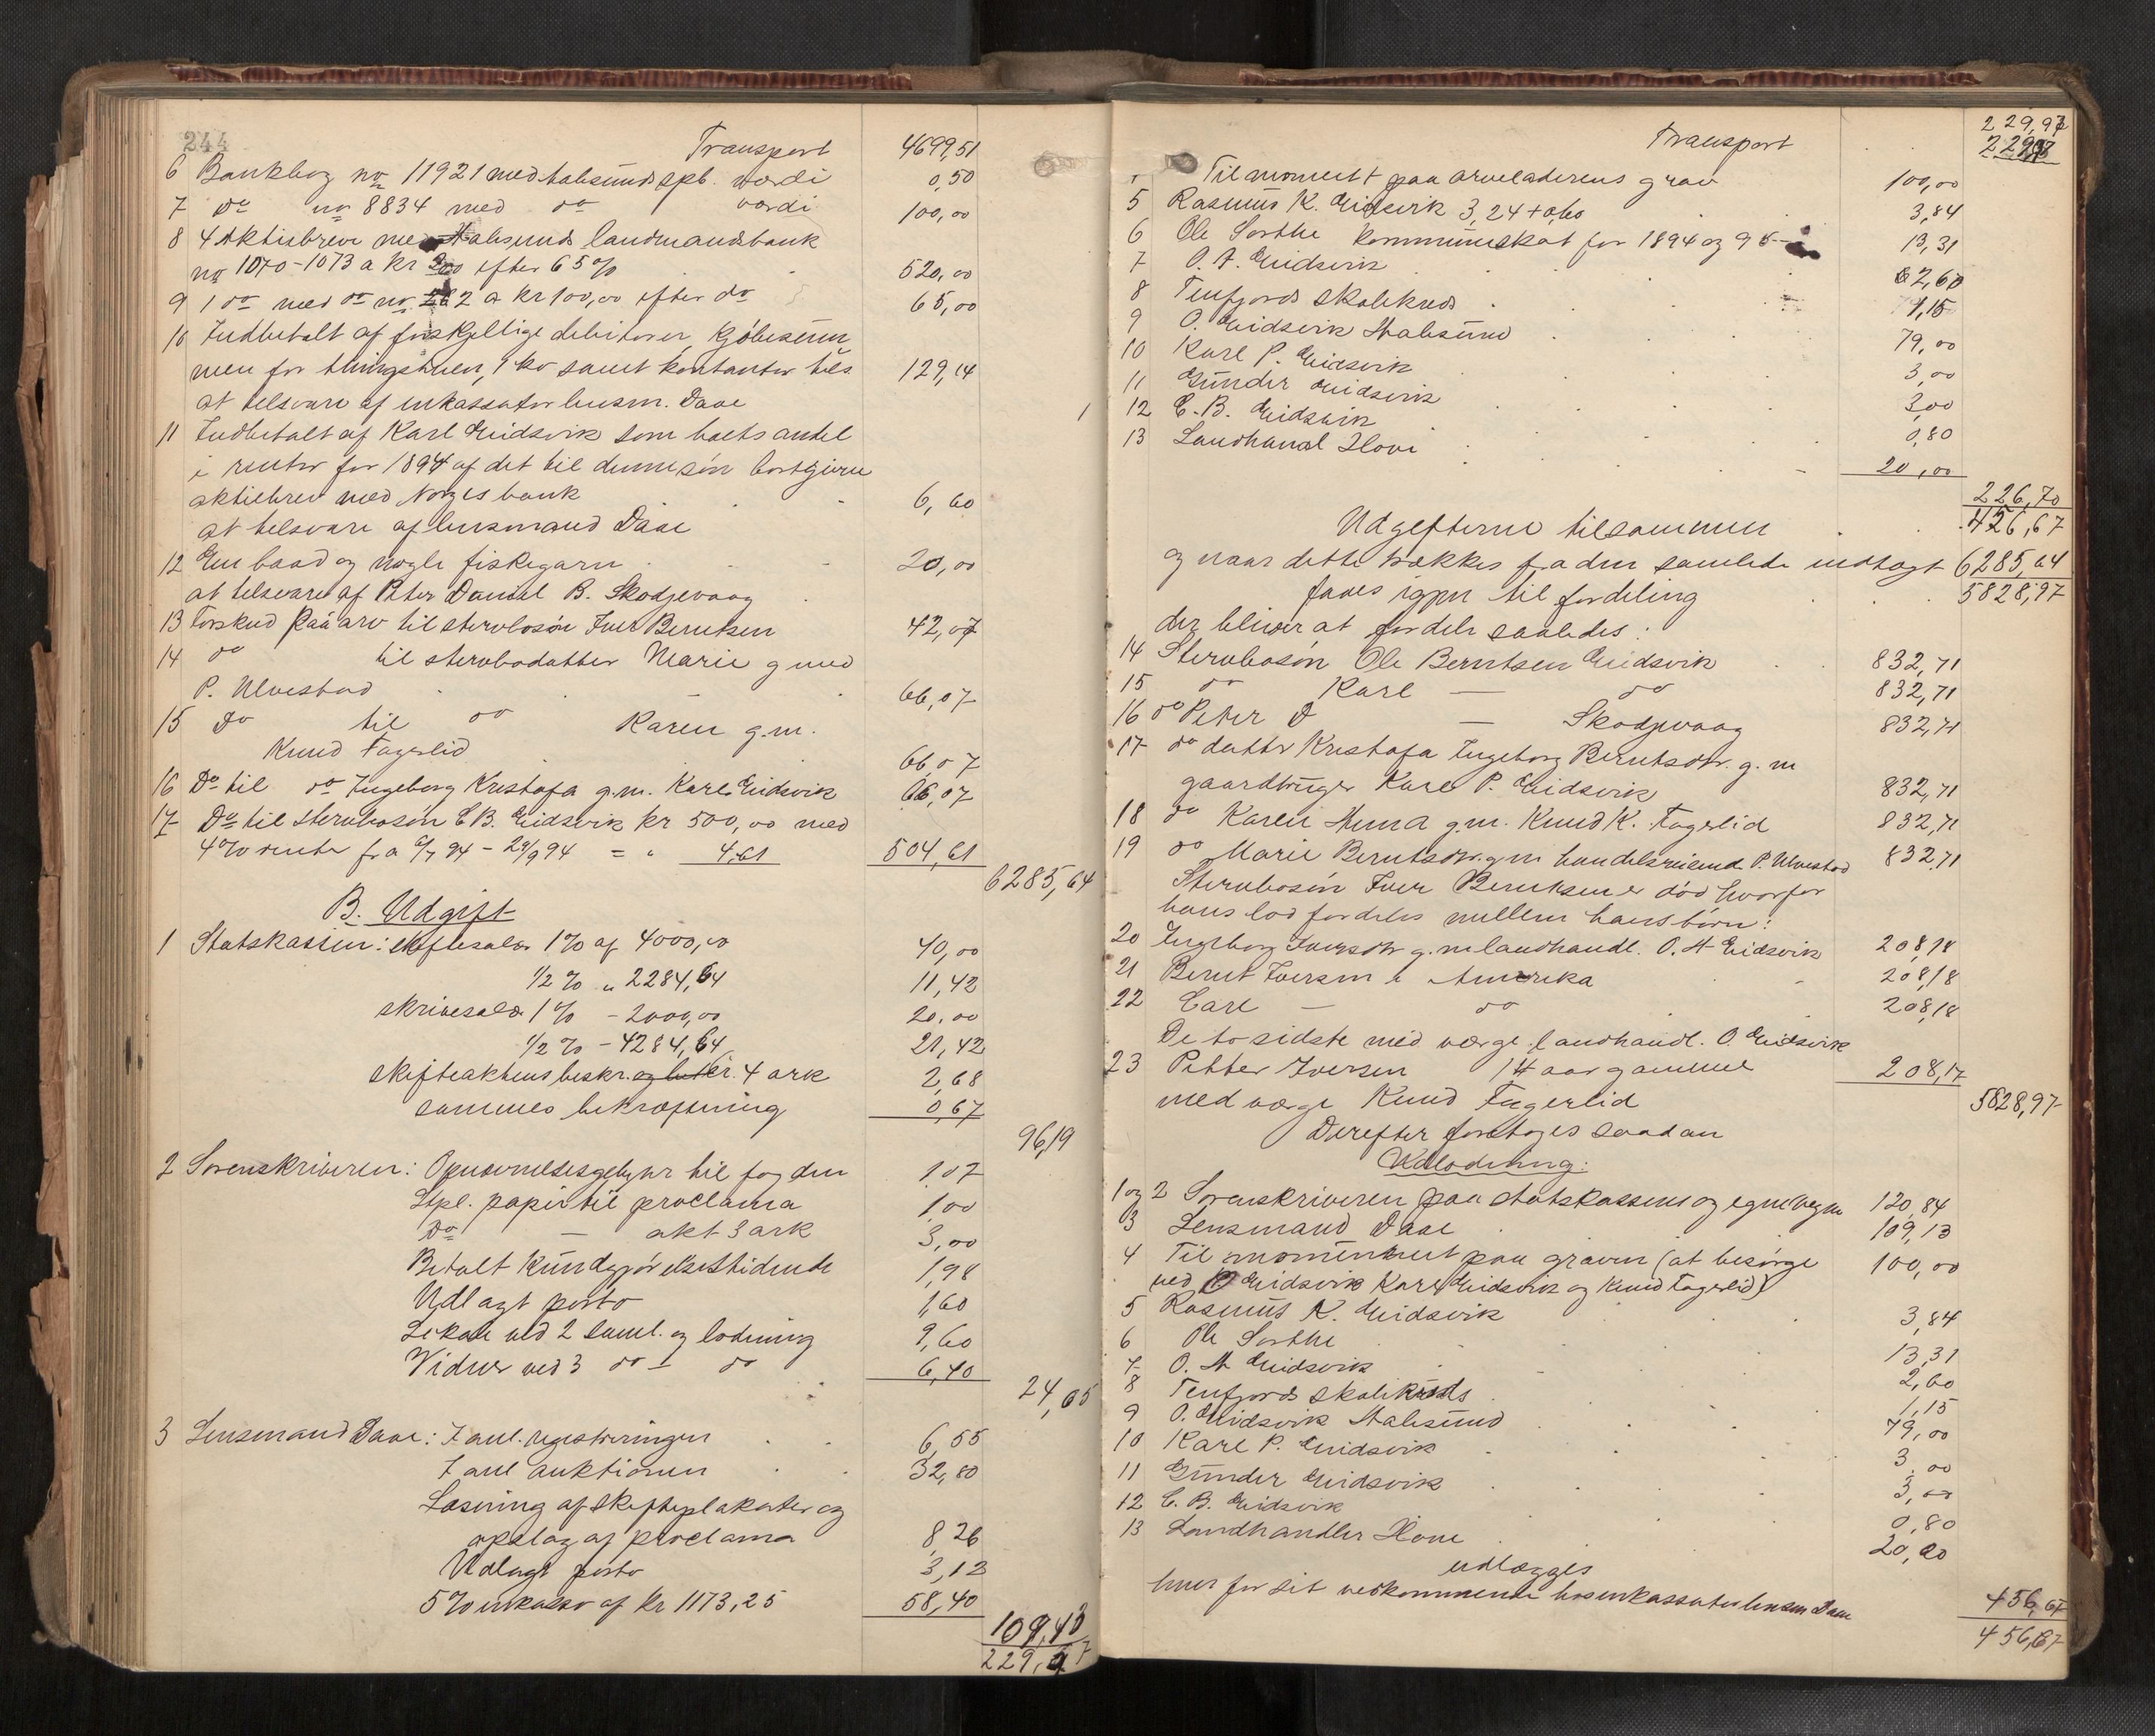 244
Transport 4699,51
6 Bankbog no 11921 med Aalesunds spb. værdi 0,50
7 Do no 8834 med do værdi 100,00
8 4 Aktiebreve med Aalesunds landmandsbank
no 1070-1073 a kr 200 efter 65% 520,00
9 1 do med do no 282 a kr 100,00 efter do 65,00
10 Indbetalt af forskjellige debitorer, kjøbesum
men for thingstuen, 1 ko samt kontanter tils. 129,14
at tilsvare af inkassator lensm. Daae
11 Indbetalt af Karl Eidsvik som boets andel
i renter for 1894 af det til denne søn bortgivne
aktiebrev med Norges bank 6,60
at tilsvare af lensmand Daae
12 En baad og nogle fiskegarn 20,00
at tilsvare af Peter Daniel B. Skodjevaag
13 Forskud paa arv til stervbosøn Iver Berntsen 42,07
14 do til stervbodatter Marie g med
P. Ulvestad 66,07
15 Do til do Karen g.m.
Knud Fagerlid 66,07
16 Do til do Ingeborg Kristofa g.m. Karl Eidsvik 66,07
17 Do til stervbosøn C.B. Eidsvik kr 500,00 med
4% rente fra 6/7 94 - 29/9 94 = " 4,61 504,61
6285,64
B. Udgift
1 Statskassen: skiftesalær 1% af 4000,00 40,00
1/2 % " 2284,64 11,42
skrivesalær 1% - 2000,00 20,00
1/2 % - 4284,64 21,42
skifteaktens beskr. 4 ark 2,68
sammes bekræftning 0,67
96,19
2 Sorenskriveren: Opnævnelsesgebyhr til fogden 1,07
Stpl. papir til proclama 1,00
Do — akt 3 ark 3,00
Betalt Kundgjørelsestidende 1,98
Udlagt porto 1,60
Lokale ved 2 saml. og lodning 9,60
Vidner ved 3 do - do 6,40
24,65
3 Lensmand Daae: I anl. registreringen 6,55
I anl auktionen 32,80
Læsning af skifteplakater og
opslag af proclama 8,26
Udlagt porto 3,12
5% inkasso af kr 1173,25 58,40
109,13
229,97
Transport 229,97
229,97
Til monument paa arveladerens grav 100,00
5 Rasmus K. Eidsvik 3,24 + 0,60 3,84
6 Ole Sorthe kommuneskat for 1894 og 95 13,31
7 O. A. Eidsvik 2,60
8 Tenfjords skolekreds 1,15
9 O. Eidsvik Aalesund 79,00
10 Karl P. Eidsvik 3,00
11 Gunder Eidsvik 3,00
12 C. B. Eidsvik 0,80
13 Landhandl Hove 20,00
226,70
Udgifterne tilsammen 456,67
og naar dette trækkes fra den samlede indtægt 6285,64
faaes igjen til fordeling 5828,97
der bliver at fordele saaledes:
14 Stervbosøn Ole Berntsen Eidsvik 832,71
15 do Karl — do 832,71
16 do Peter D — Skodjevaag 832,71
17 do datter Kristofa Ingeborg Berntsdtr. g. m
gaardbruger Karl P. Eidsvik 832,71
18 do Karen Anna g.m. Knud K. Fagerlid 832,71
19 do Marie Berntsdtr. g m handelsreisend P. Ulvestad 832,71
Stervbosøn Iver Berntsen er død hvorfor
hans lod fordeles mellem hans børn:
20 Ingeborg Iversdtr g. m landhandl. O. A Eidsvik 208,18
21 Bernt Iversen i Amerika 208,18
22 Carl — do 208,18
De to sidste med værge landhandl. O. Eidsvik
23 Petter Iversen 14 aar gammel 208,17
med værge Knud Fagerlid 5828,97
Derefter foretoges saadan
Udlodning:
1 og 2 Sorenskriveren paa statskassens og egne vegne 120,84
3 Lensmand Daae 109,13
4 Til monument paa graven (at besørge 100,00
ved O. Eidsvik Karl Eidsvik og Knud Fagerlid)
5 Rasmus K. Eidsvik 3,84
6 Ole Sorthe 13,31
7 O. A Eidsvik 2,60
8 Tenfjords skolekreds 1,15
9 O. Eidsvik Aalesund 79,00
10 Karl P. Eidsvik 3,00
11 Gunder Eidsvik 3,00
12 C. B. Eidsvik 0,80
13 Landhandler Hove 20,00
udlægges
hver for sit vedkommende hos inkassator lensm Daae 456,67
456,67